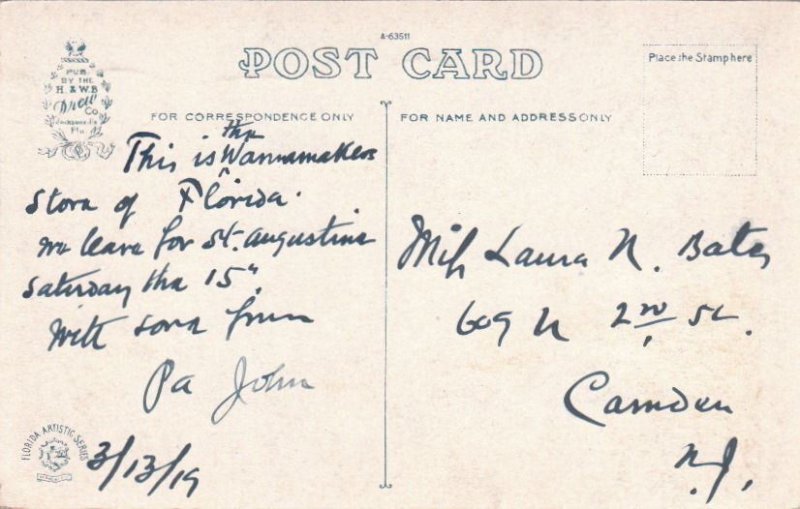 A-63511
POST CARD
PUB.
BY THE
H. & W.B
Drew
Co
Jacksonville
Fla
Place the Stamp here
FOR CORRESPONDENCE ONLY
FOR NAME AND ADDRESS ONLY
the
This is ^ Wannamakers
Store of Florida.
we leave for St. Augustine
Saturday the 15".
With love from
Pa John
3/13/19
Miss Laura N. Bates
609 N 2nd St.
Camden
N.J.
FLORIDA ARTISTIC SERIES